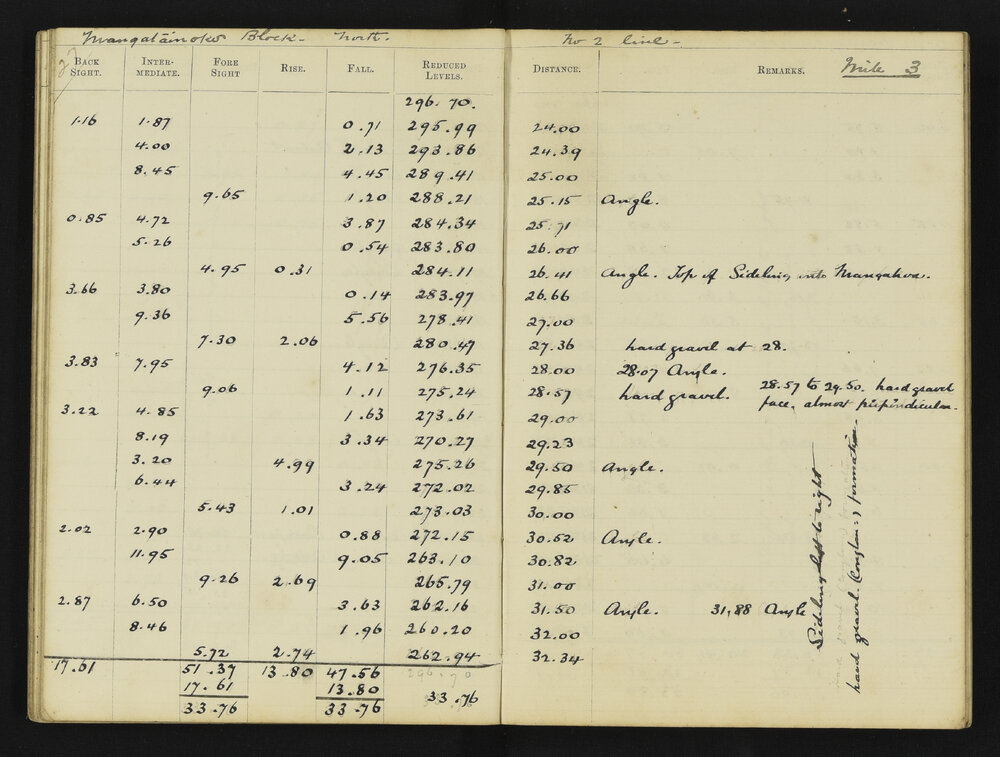 Mangatainoko Block - North. No 2 line -
27
BACK SIGHT. INTER-MEDIATE. FORE SIGHT RISE. FALL. REDUCED LEVELS. DISTANCE. REMARKS. Mile 3
296.70.
1.16 1.87 0.71 295.99 24.00
4.00 2.13 293.86 24.39
8.45 4.45 289.41 25.00
9.65 1.20 288.21 25.15 Angle.
0.85 4.72 3.87 284.34 25.71
5.26 0.54 283.80 26.00
4.95 0.31 284.11 26.41 Angle. Top of Sideling into Mangahoa.
3.66 3.80 0.14 283.97 26.66
9.36 5.56 278.41 27.00
7.30 2.06 280.47 27.36 hard gravel at 28.
3.83 7.95 4.12 276.35 28.00 28.07 Angle.
9.06 1.11 275.24 28.57 hard gravel. 28.57 to 29.50. hard gravel
face, almost pirpindicular.
3.22 4.85 1.63 273.61 29.00
8.19 3.34 270.27 29.23
3.20 4.99 275.26 29.50 Angle.
6.44 3.24 272.02 29.85
5.43 1.01 273.03 30.00
2.02 2.90 0.88 272.15 30.52 Angle.
11.95 9.05 263.10 30.82
9.26 2.69 265.79 31.00
2.87 6.50 3.63 262.16 31.50 Angle. 31.88 Angle
8.46 1.96 260.20 32.00
5.72 2.74 262.94 32.34
17.61 51.37 13.80 47.56 296.70
17.61 13.80 33.76
33.76 33.76
Sideling left to right
hard gravel formation.